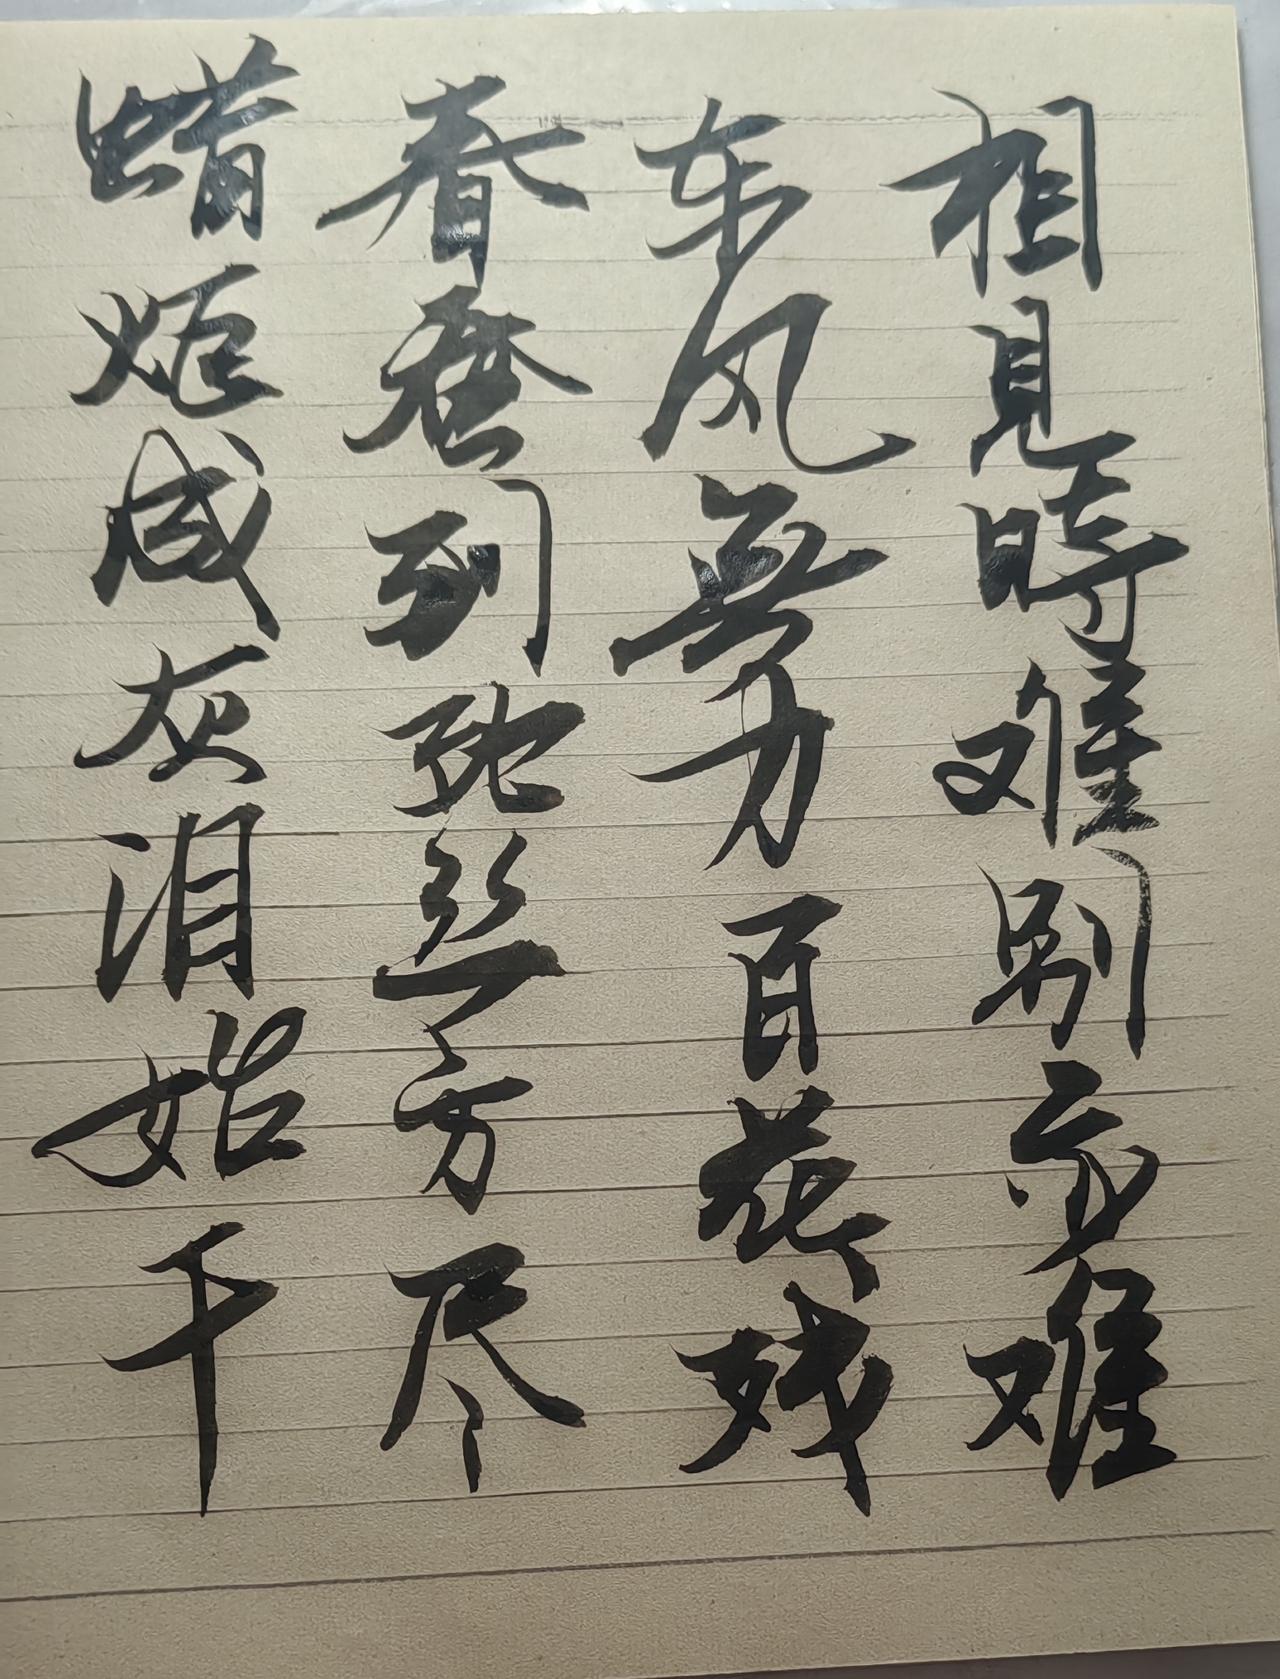 相見時难别亦难
东风無力百花残
春蚕到死丝方尽
蜡炬成灰泪始干